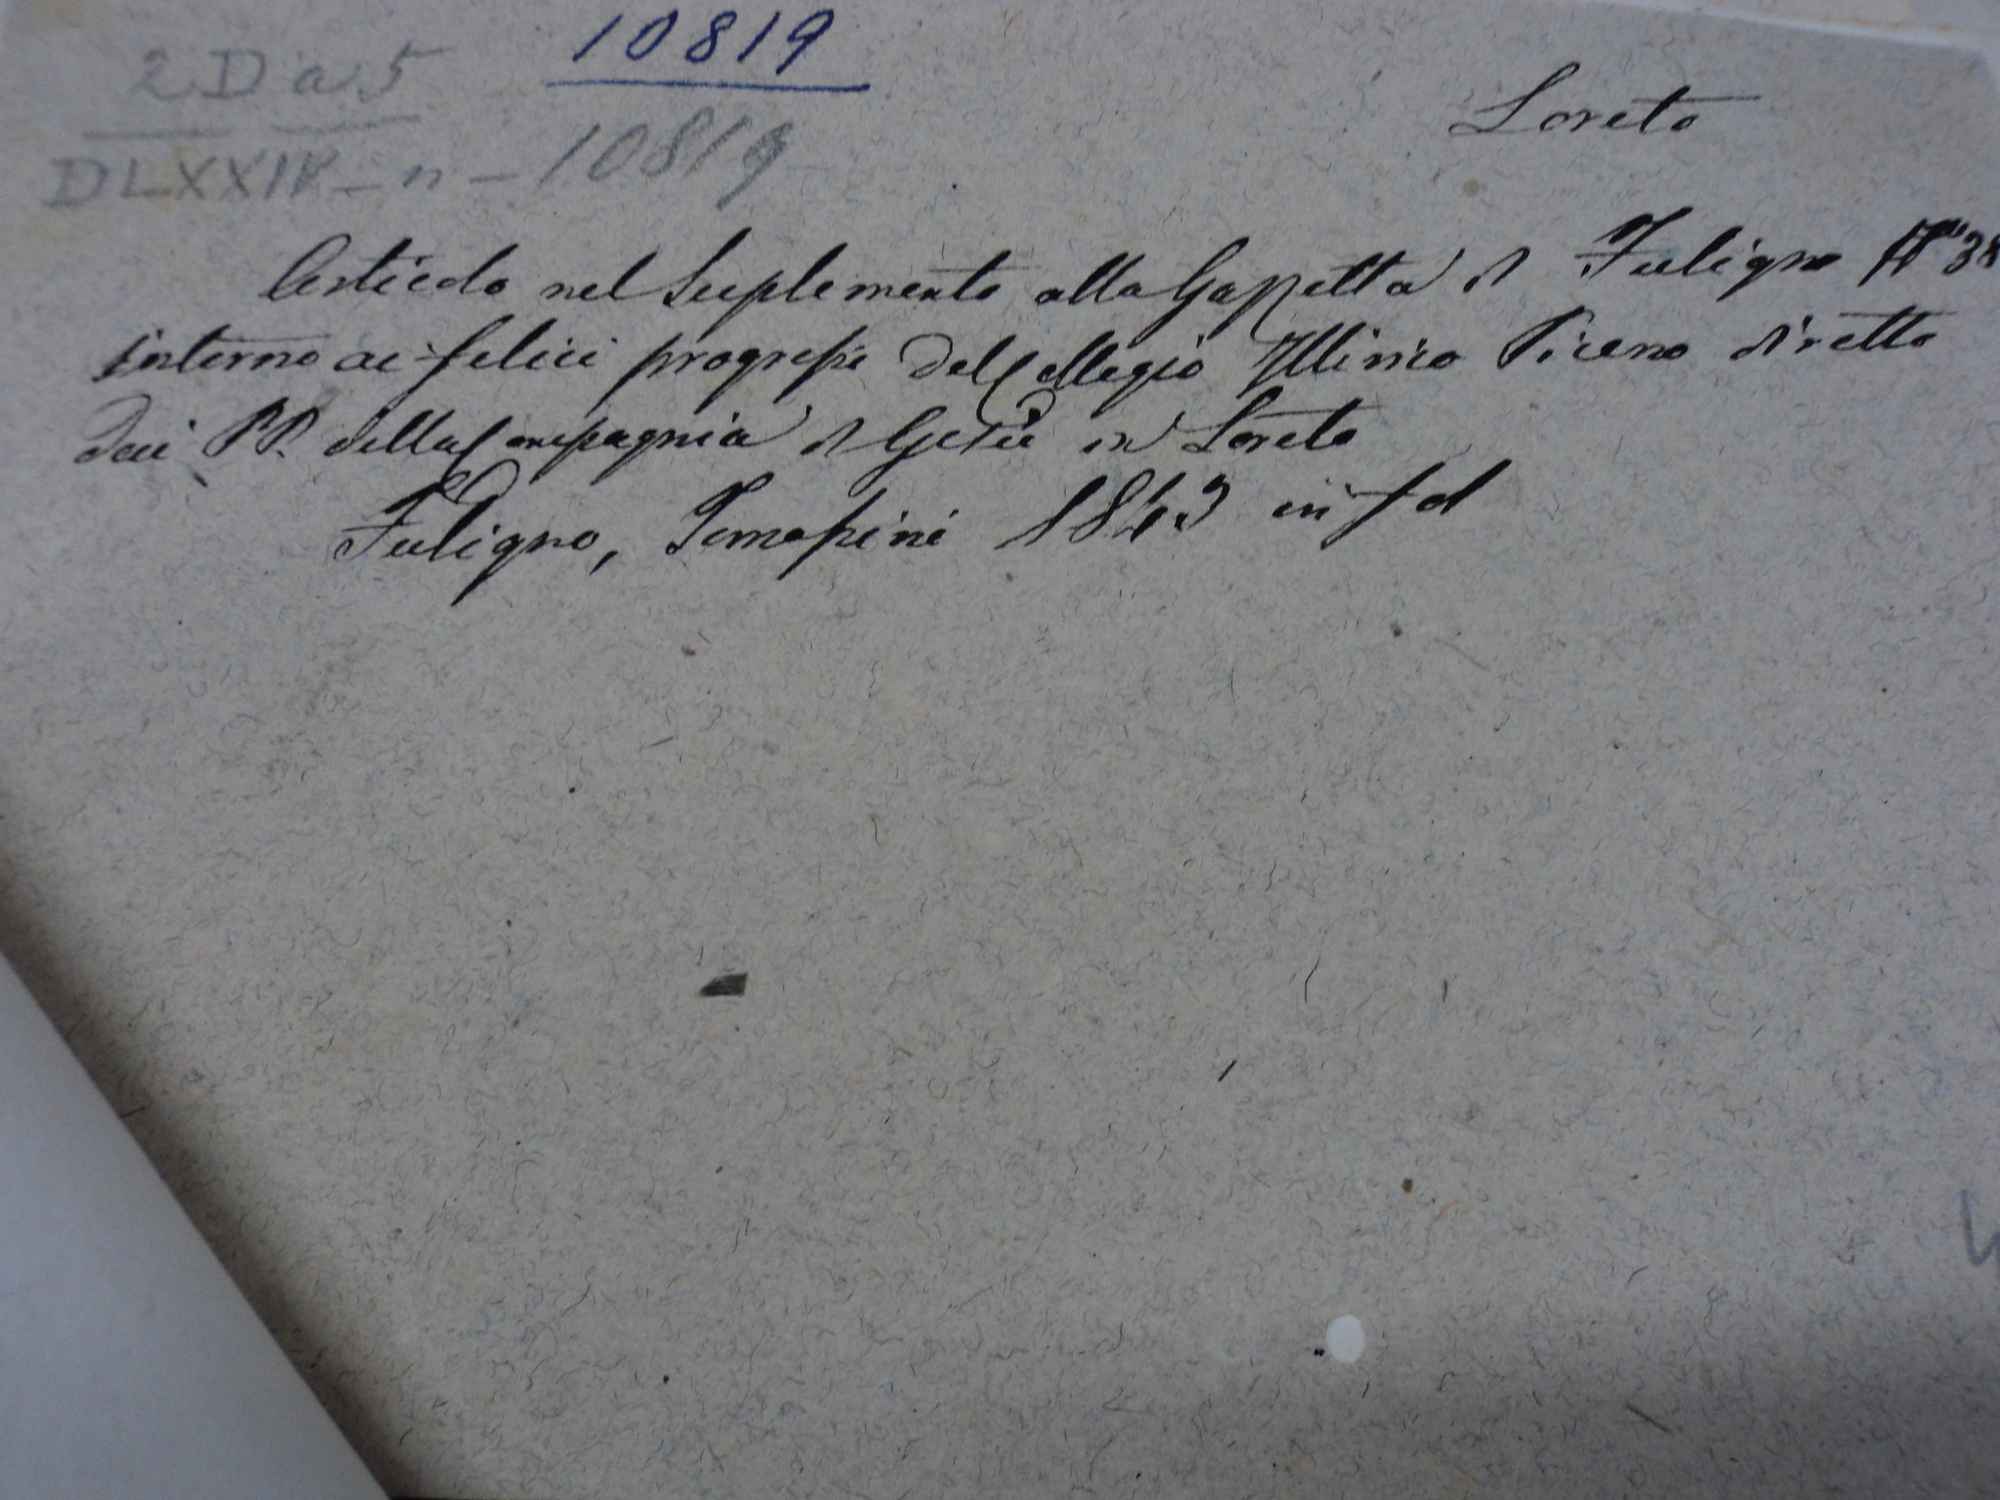 10819
2 D a 5
DLXXIV - n - 10819
Loreto
Articolo nel Suplemento alla Gazzetta di Fuligno N° 38
intorno ai felici progressi del Collegio Illirico Piceno diretto
dai PP. della Compagnia di Gesù in Loreto
Fuligno, Tomassini 1843 in fol